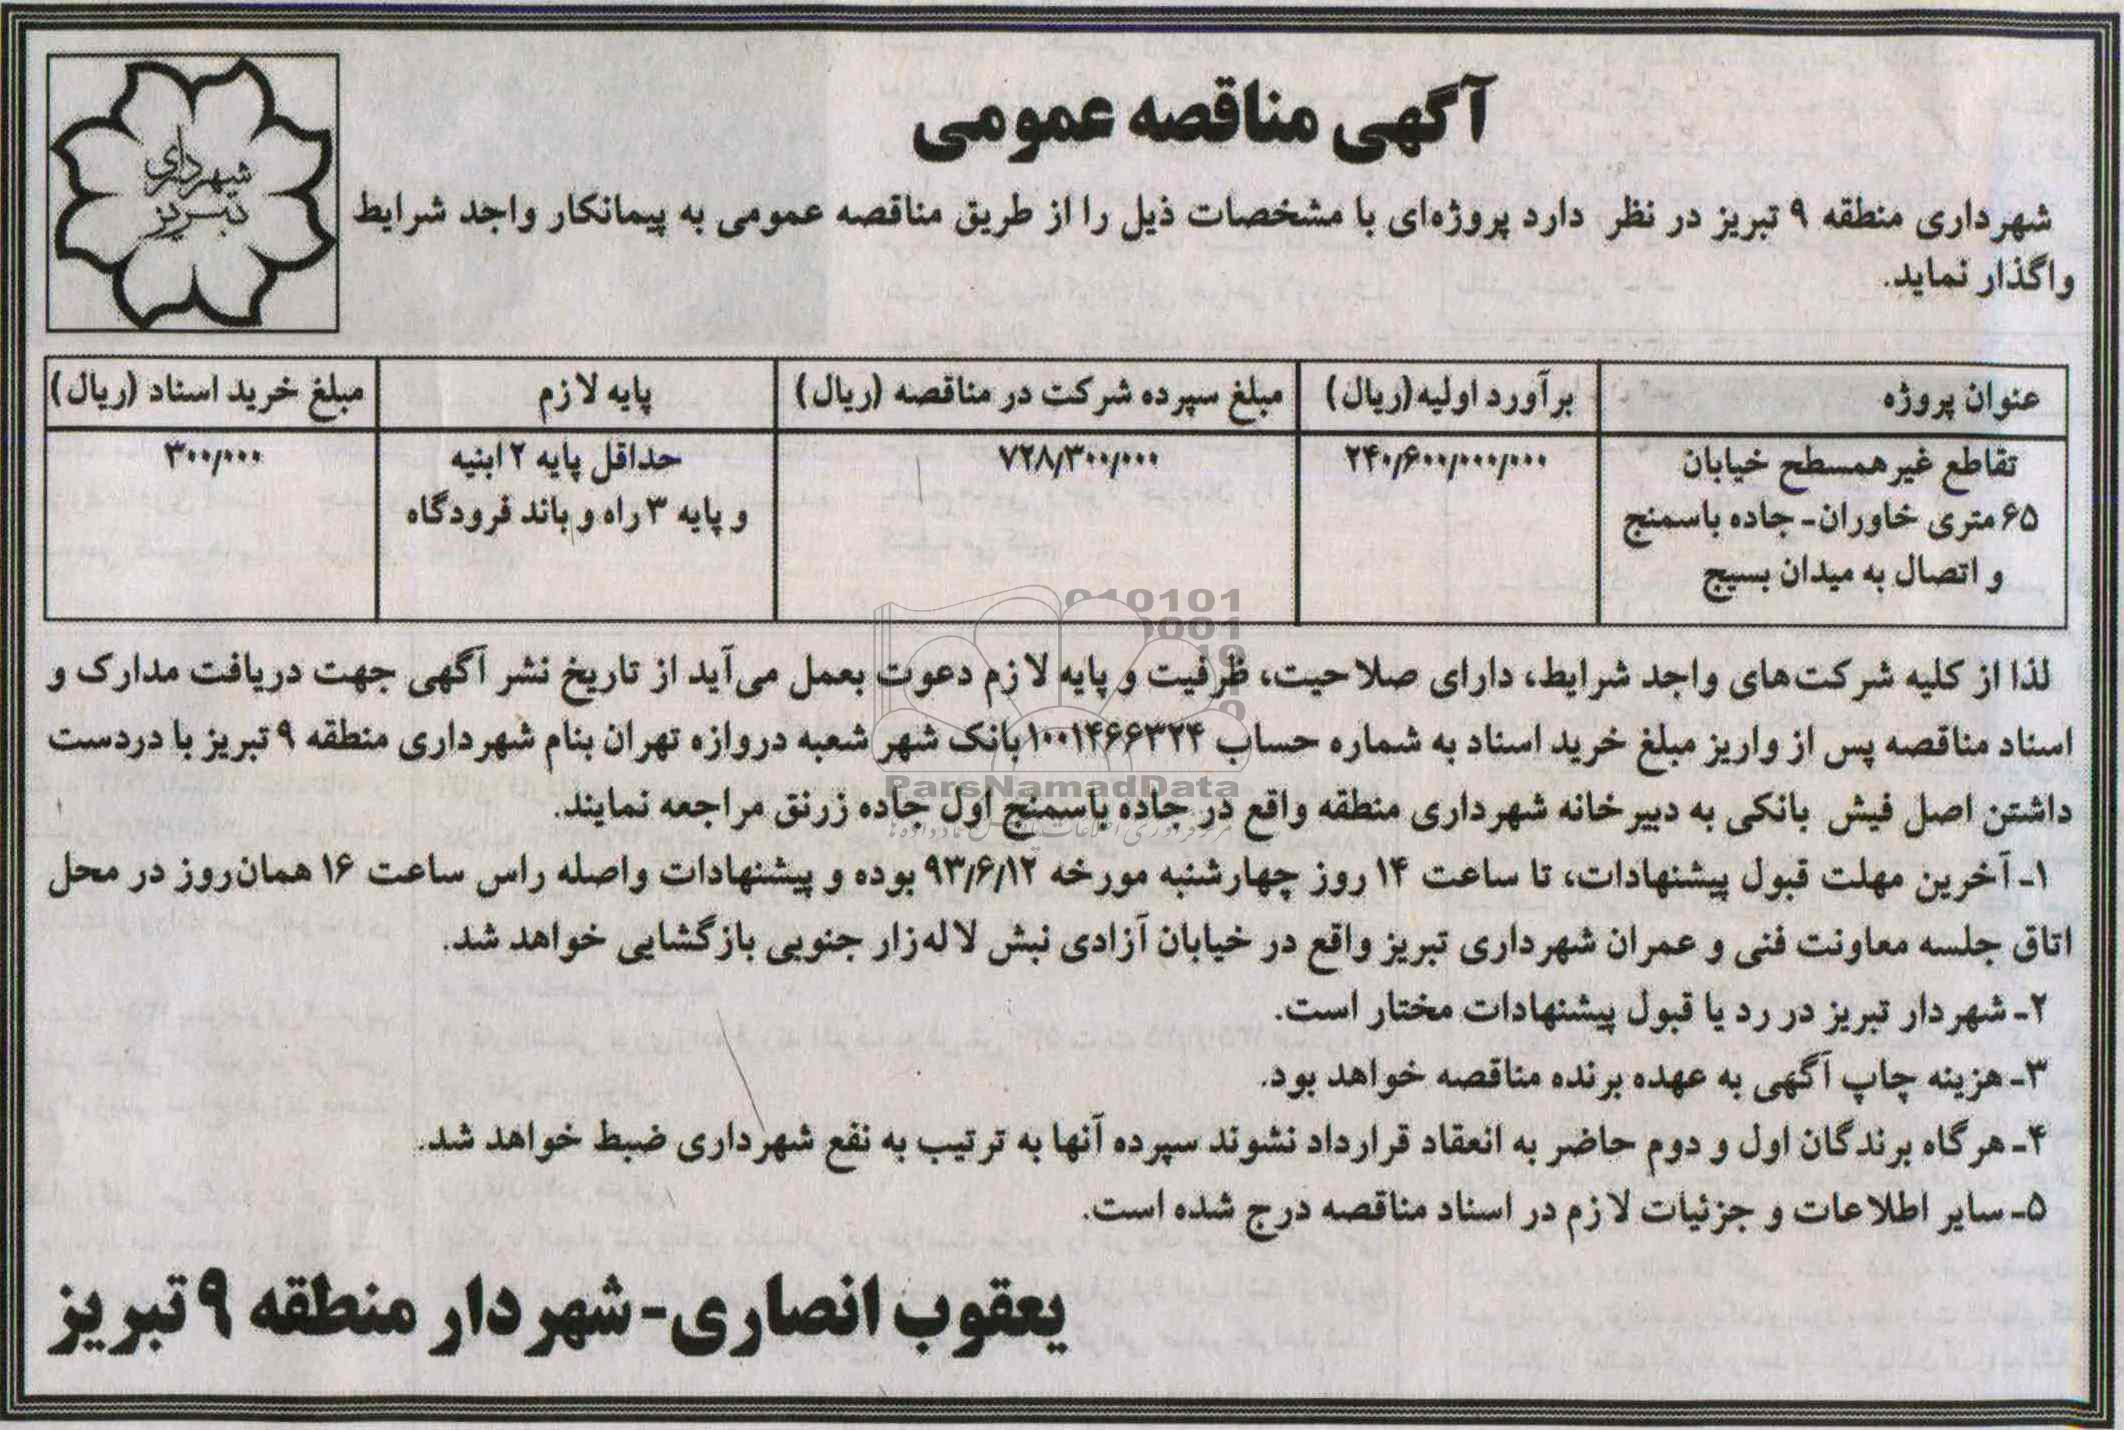 آگهی مناقصه عمومی
شهرداری تبریز
شهرداری منطقه ۹ تبریز در نظر دارد پروژه‌ای با مشخصات ذیل را از طریق مناقصه عمومی به پیمانکار واجد شرایط
واگذار نماید.
عنوان پروژه	برآورد اولیه(ریال)	مبلغ سپرده شرکت در مناقصه (ریال)	پایه لازم	مبلغ خرید اسناد (ریال)
تقاطع غیرهمسطح خیابان	۲۴۰/۶۰۰/۰۰۰/۰۰۰	۷۲۸/۳۰۰/۰۰۰	حداقل پایه ۲ ابنیه	۳۰۰/۰۰۰
۶۵ متری خاوران- جاده باسمنج	و پایه ۳ راه و باند فرودگاه
و اتصال به میدان بسیج
لذا از کلیه شرکت‌های واجد شرایط، دارای صلاحیت، ظرفیت و پایه لازم دعوت بعمل می‌آید از تاریخ نشر آگهی جهت دریافت مدارک و
اسناد مناقصه پس از واریز مبلغ خرید اسناد به شماره حساب ۱۰۰۱۴۶۶۳۲۴ بانک شهر شعبه دروازه تهران بنام شهرداری منطقه ۹ تبریز با دردست
داشتن اصل فیش بانکی به دبیرخانه شهرداری منطقه واقع در جاده باسمنج اول جاده زرنق مراجعه نمایند.
۱- آخرین مهلت قبول پیشنهادات، تا ساعت ۱۴ روز چهارشنبه مورخه ۹۳/۶/۱۲ بوده و پیشنهادات واصله راس ساعت ۱۶ همان‌روز در محل
اتاق جلسه معاونت فنی و عمران شهرداری تبریز واقع در خیابان آزادی نبش لاله‌زار جنوبی بازگشایی خواهد شد.
۲- شهردار تبریز در رد یا قبول پیشنهادات مختار است.
۳- هزینه چاپ آگهی به عهده برنده مناقصه خواهد بود.
۴- هرگاه برندگان اول و دوم حاضر به انعقاد قرارداد نشوند سپرده آنها به ترتیب به نفع شهرداری ضبط خواهد شد.
۵- سایر اطلاعات و جزئیات لازم در اسناد مناقصه درج شده است.
یعقوب انصاری- شهردار منطقه ۹ تبریز
ParsNamadData